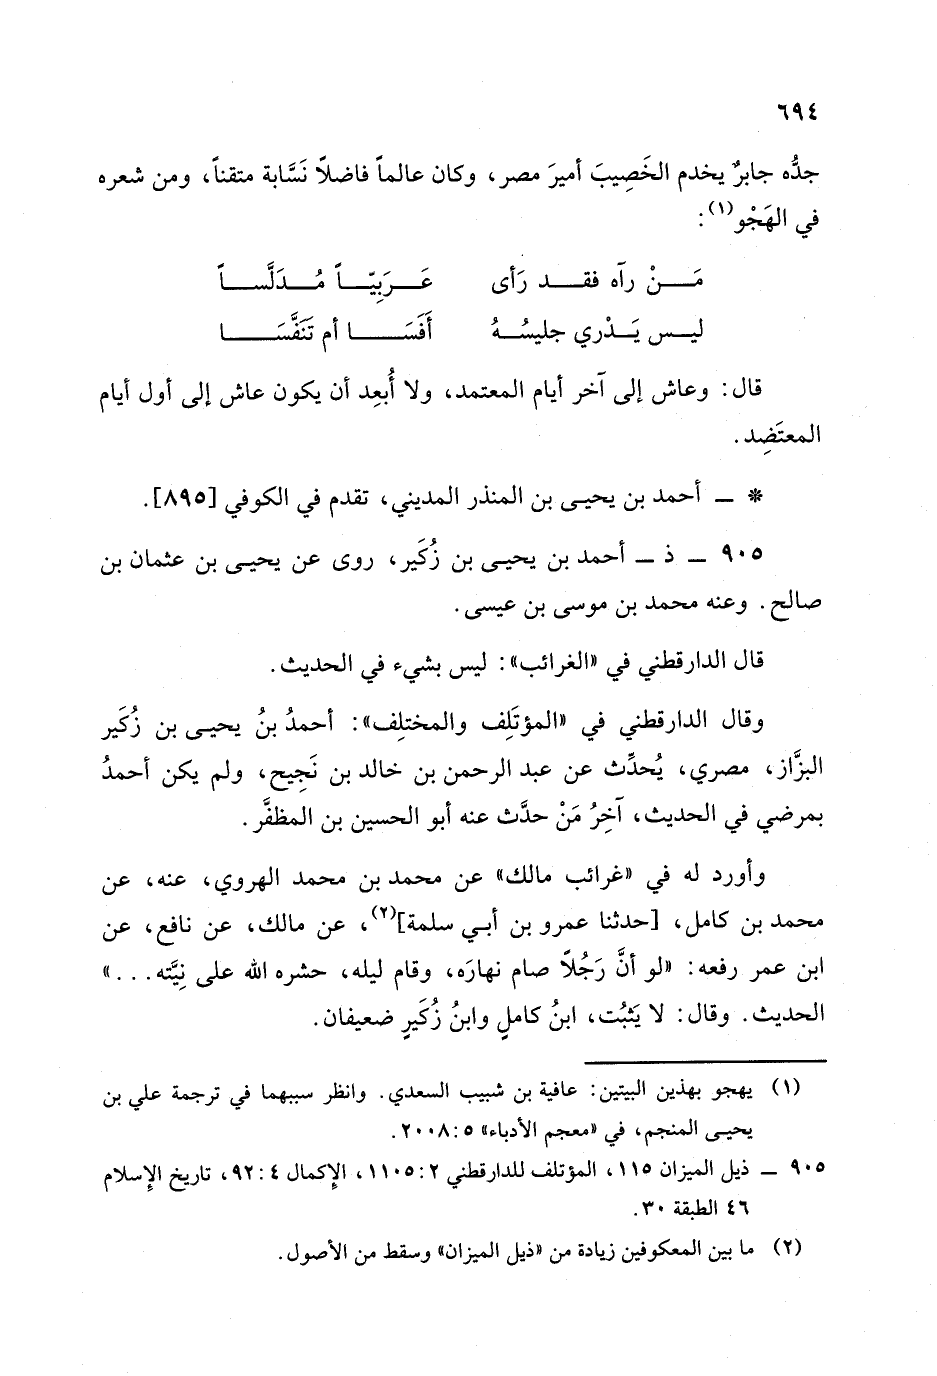 ٦٩٤
جدُّه جابرٌ يخدم الخَصِيبَ أميرَ مصر، وكان عالماً فاضلاً نَسَّابة متقناً، ومن شعره
في الهَجْو(١):
مَـــنْ رآه فقـــد رَأى عَـــرَبِيّـــاً مُـــدَلَّســـاً
ليـــس يَـــدْري جليسُـــهُ أَفَسَـــــا أم تَنَفَّسَـــــا
قال: وعاش إلى آخر أيام المعتمد، ولا أُبعِد أن يكون عاش إلى أول أيام
المعتَضِد.
* ــ أحمد بن يحيـى بن المنذر المديني، تقدم في الكوفي [٨٩٥].
٩٠٥ ــ ذ ــ أحمد بن يحيـى بن زُكَير، روى عن يحيـى بن عثمان بن
صالح. وعنه محمد بن موسى بن عيسى.
قال الدارقطني في «الغرائب»: ليس بشيء في الحديث.
وقال الدارقطني في «المؤتَلِف والمختلِف»: أحمدُ بنُ يحيـى بن زُكَير
البزَّاز، مصري، يُحدِّث عن عبد الرحمن بن خالد بن نَجِيح، ولم يكن أحمدُ
بمرضي في الحديث، آخِرُ مَنْ حدَّث عنه أبو الحسين بن المظفَّر.
وأورد له في «غرائب مالك» عن محمد بن محمد الهروي، عنه، عن
محمد بن كامل، [حدثنا عمرو بن أبـي سلمة](٢)، عن مالك، عن نافع، عن
ابن عمر رفعه: «لو أنَّ رَجُلاً صام نهارَه، وقام ليله، حشره الله على نِيَّته...»
الحديث. وقال: لا يَثبُت، ابنُ كاملٍ وابنُ زُكَيرٍ ضعيفان.
(١) يهجو بهذين البيتين: عافية بن شبيب السعدي. وانظر سببهما في ترجمة علي بن
يحيـى المنجم، في «معجم الأدباء» ٥:٢٠٠٨.
٩٠٥ ــ ذيل الميزان ١١٥، المؤتلف للدارقطني ٢:١١٠٥، الإكمال ٤:٩٢، تاريخ الإسلام
٤٦ الطبقة ٣٠.
(٢) ما بين المعكوفين زيادة من «ذيل الميزان» وسقط من الأصول.